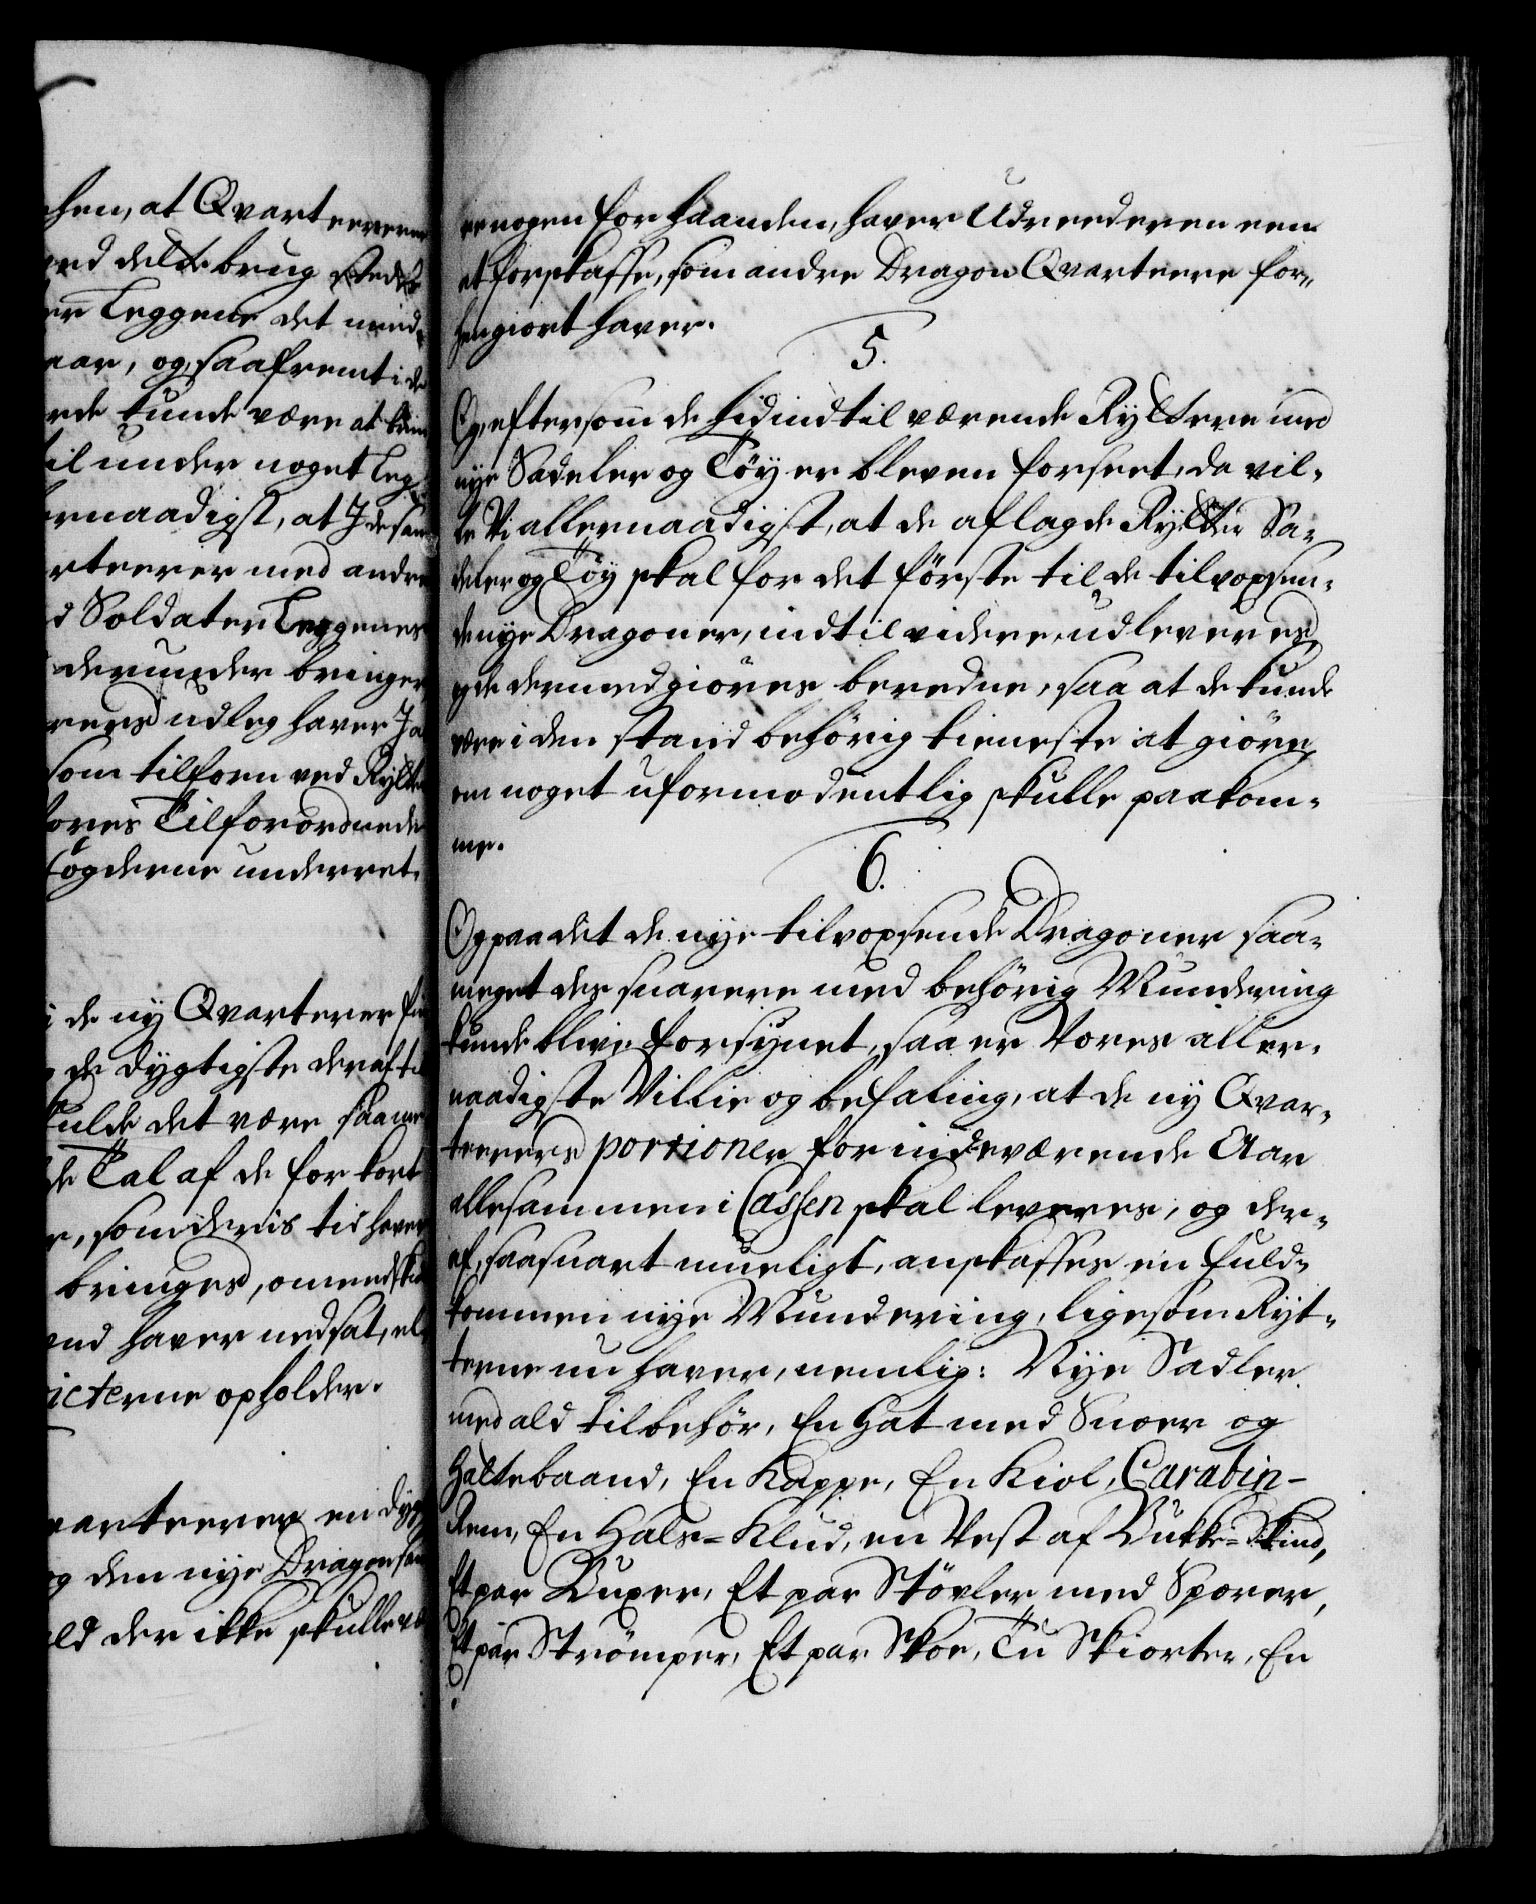 hen, at Qvarteererne
ved delte brug
Leggene det mind-
aar, og, saafremt i de
kunde være at
til under noget Leg
ernaadigst, at I de
rteerer med andre
d Soldater Leggenes
derunder bringer
udleg haver
som tilforn ved Rytter
vores Tilforordnede
fogderne underret-
i de ny Qvarterer
de dygtigste deraf til
skulde det være saa
de Tal af de for kort
som deris tid haver
bringes, omendskiønt
haver nedsat, el-
icterne opholder.
qvarteerer en dyg
og den nye Dragon
ald der ikke skulle
er nogen for haanden, haver Udreederen een
at forskaffe, som andre Dragon Qvarteere for-
hen giort haver.
5.
Og, eftersom de hidindtil værende Ryttere med
nye Sadeler og Töy er bleven forseet, da vil-
le Vi allernaadigst, at de aflagde Rytter Sa-
deler og Töy skal for det förste til de tilvoxsen-
de nye Dragoner, indtil videre, udleveres,
og de dermed giöres beredne, saa at de kunde
være i den stand behörig tieneste at giöre,
om noget uformodentlig skulle paakom-
me.
6.
Og paa det de nye tilvoxsende Dragoner saa-
meget des snarere med behörig Mundering
kunde blive forsynet, saa er Vores aller-
naadigste Villie og befaling, at de ny Qvar-
teerers portioner for indeværende Aar
allesammen i Cassen skal leveres, og der-
af, saasnart mueligt, anskaffes en fuld-
kommen nye Mundering, ligesom Ryt-
terne nu haver, nemlig: Nye Sadler
med ald tilbehör, En Hat med Snoer og
Hattebaand, En Kappe, En Kiol, Carabin-
Rem, En Hals-Klud, en Vest af Bukke-Skind,
Et par Buxer, Et par Stövler med Sporer,
Et par Strömper, Et par Skoe, Tu Skiorter, En